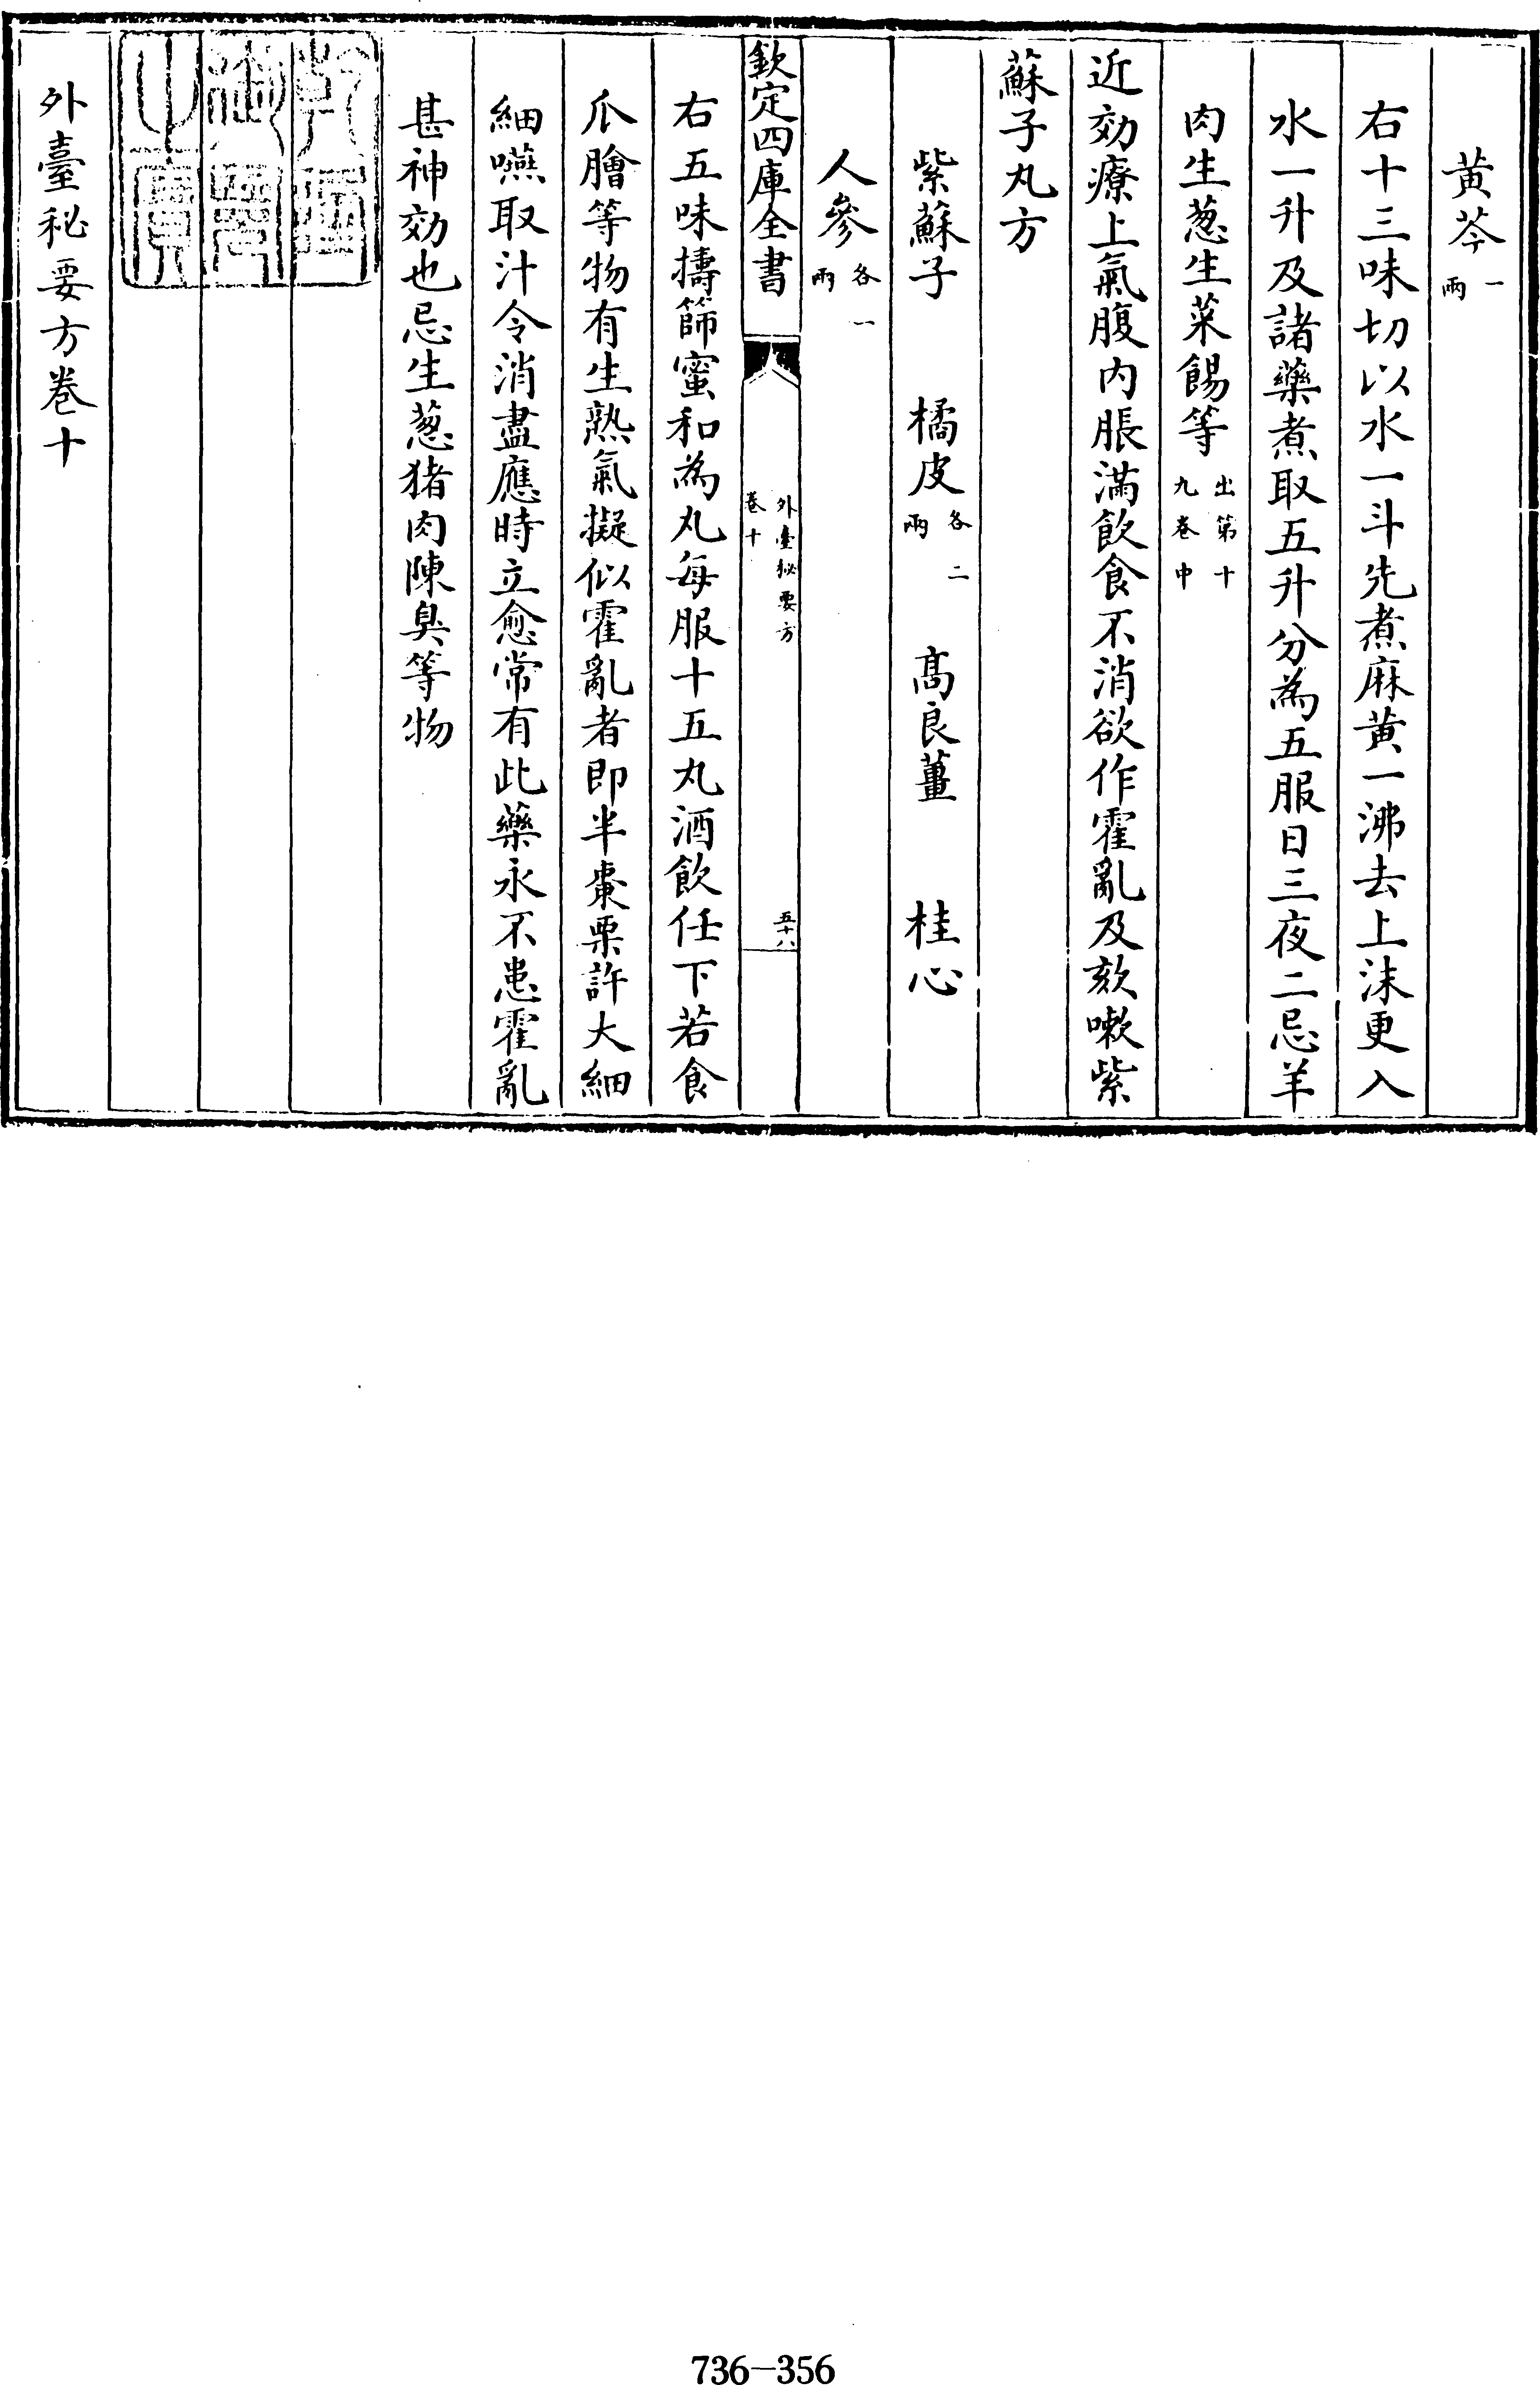 黄芩一兩
右十三味切以水一斗先煮麻黄一沸去上沫更入
水一升及諸藥煮取五升分為五服日三夜二忌羊
肉生葱生菜餳等出第十九卷中
近効療上氣腹内脹滿飲食不消欲作霍亂及欬嗽紫
蘇子丸方
紫蘇子 橘皮各二兩 髙良薑 桂心
人參各一兩
欽定四庫全書 外臺秘要方卷十 五十八
右五味擣篩蜜和為丸每服十五丸酒飲任下若食
爪膾等物有生熟氣擬似霍亂者即半棗栗許大細
細嚥取汁令消盡應時立愈常有此藥永不患霍亂
甚神効也忌生葱猪肉陳臭等物
乾隆御覽之寶
外臺秘要方卷十
736-356